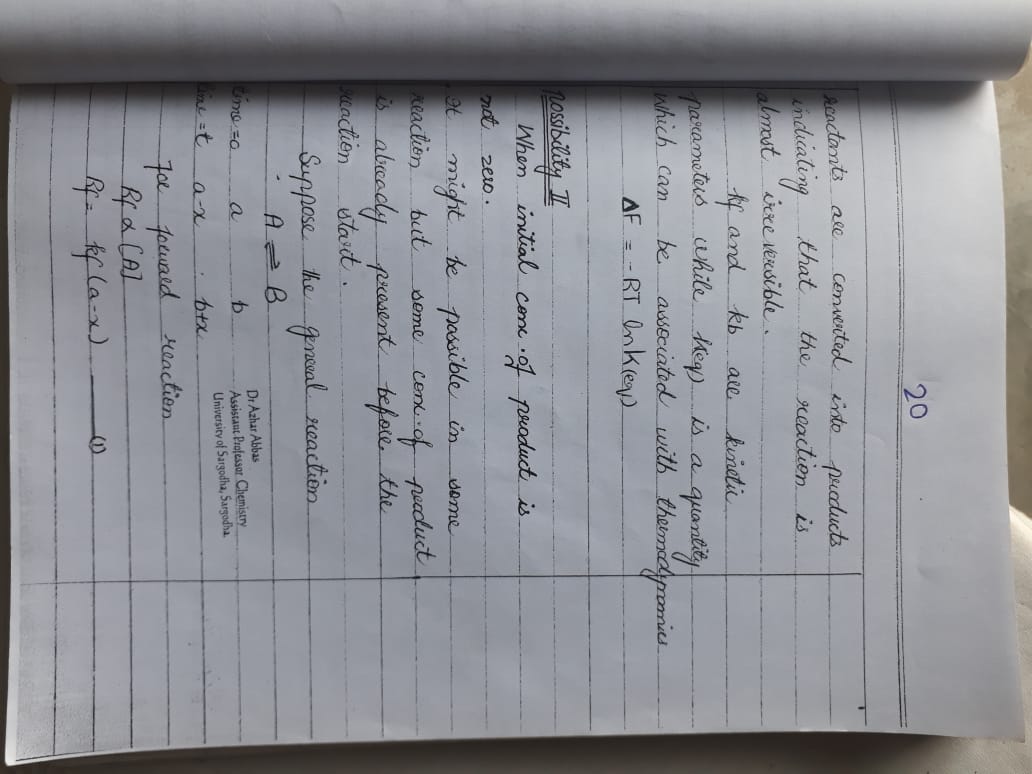 20
reactants are converted into products
indicating that the reaction is
almost irreversible.
kf and kb are kinetic
parameters while k(eq) is a quantity
which can be associated with thermodynamics
ΔF = -RT lnK(eq)
Possibility II
When initial conc. of product is
not zero.
It might be possible in some
reaction but some conc. of product
is already present before the
reaction start.
Suppose the general reaction
A ⇌ B
time=0 a b
time=t a-x b+x
For forward reaction
Rf α [A]
Rf = kf(a-x) ——— (1)
Dr Azhar Abbas
Assistant Professor Chemistry
University of Sargodha, Sargodha